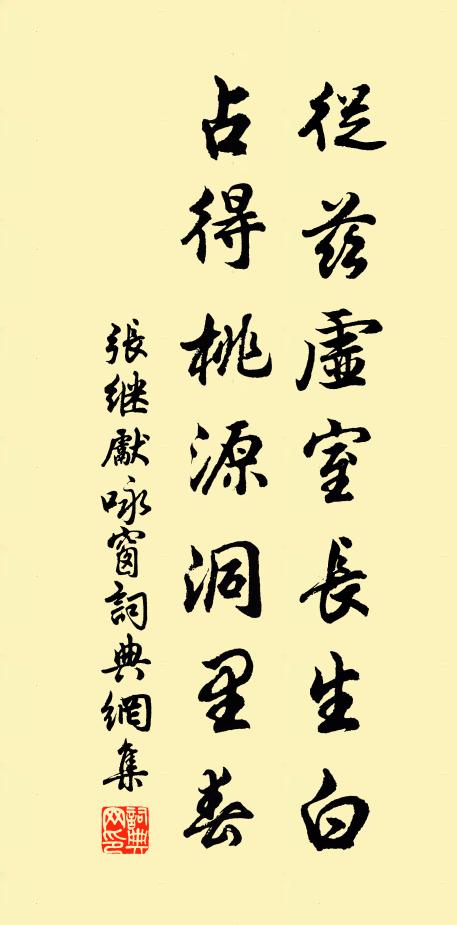 從茲虛室長生白
占得桃源洞里春
張继獻咏窗詞典網集
詞典網印